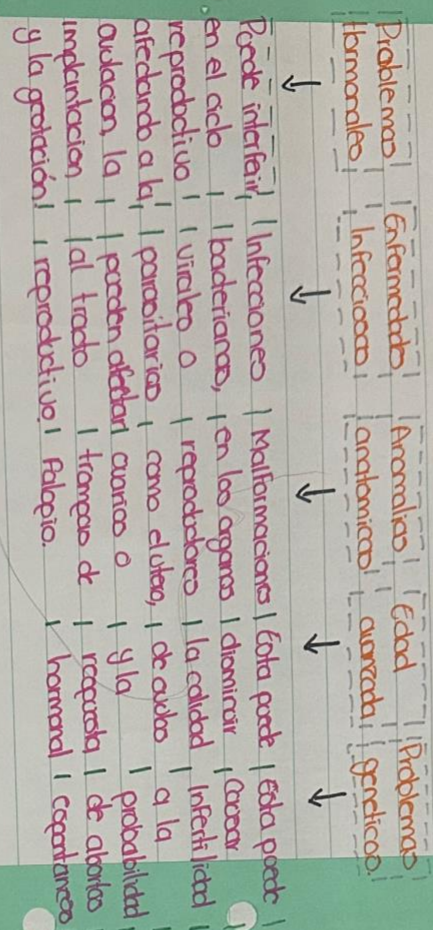 Problemas
Hormonales
Puede interferir
en el ciclo
reproductivo
afectando a la
ovulacion, la
implantacion
y la gestación
Enfermedades
Infecciosas
Infecciones
bacterianas,
virales o
parasitarias
pueden afectar
al tracto
reproductivo
Anomalias
anatomicas
Malformaciones
en los organos
reproductores
como el utero,
ovarios o
trompas de
Falopio.
Edad
avanzada
Esta puede
disminuir
la calidad
de ovulos
y la
respuesta
hormonal
Problemas
geneticos.
Esta puede
causar
Infertilidad
a la
probabilidad
de abortos
espontaneos